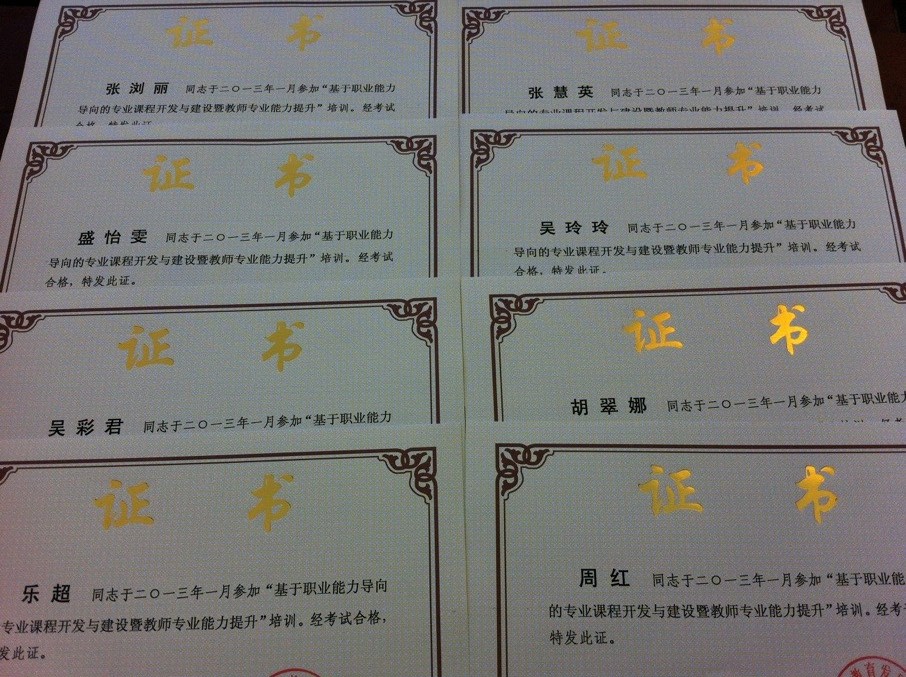 证 书
张浏丽 同志于二〇一三年一月参加“基于职业能力
导向的专业课程开发与建设暨教师专业能力提升”培训。经考试
合格，特发此证
证 书
张慧英 同志于二〇一三年一月参加“基于职业能力
导向的专业课程开发与建设暨教师专业能力提升”培训。经考试
证 书
盛怡雯 同志于二〇一三年一月参加“基于职业能力
导向的专业课程开发与建设暨教师专业能力提升”培训。经考试
合格，特发此证。
证 书
吴玲玲 同志于二〇一三年一月参加“基于职业能力
导向的专业课程开发与建设暨教师专业能力提升”培训。经考试
合格，特发此证。
证 书
吴彩君 同志于二〇一三年一月参加“基于职业能力
证 书
胡翠娜 同志于二〇一三年一月参加“基于职业能力
证 书
乐超 同志于二〇一三年一月参加“基于职业能力导向
专业课程开发与建设暨教师专业能力提升”培训。经考试合格，
发此证。
证 书
周红 同志于二〇一三年一月参加“基于职业能
的专业课程开发与建设暨教师专业能力提升”培训。经考
特发此证。
教育发